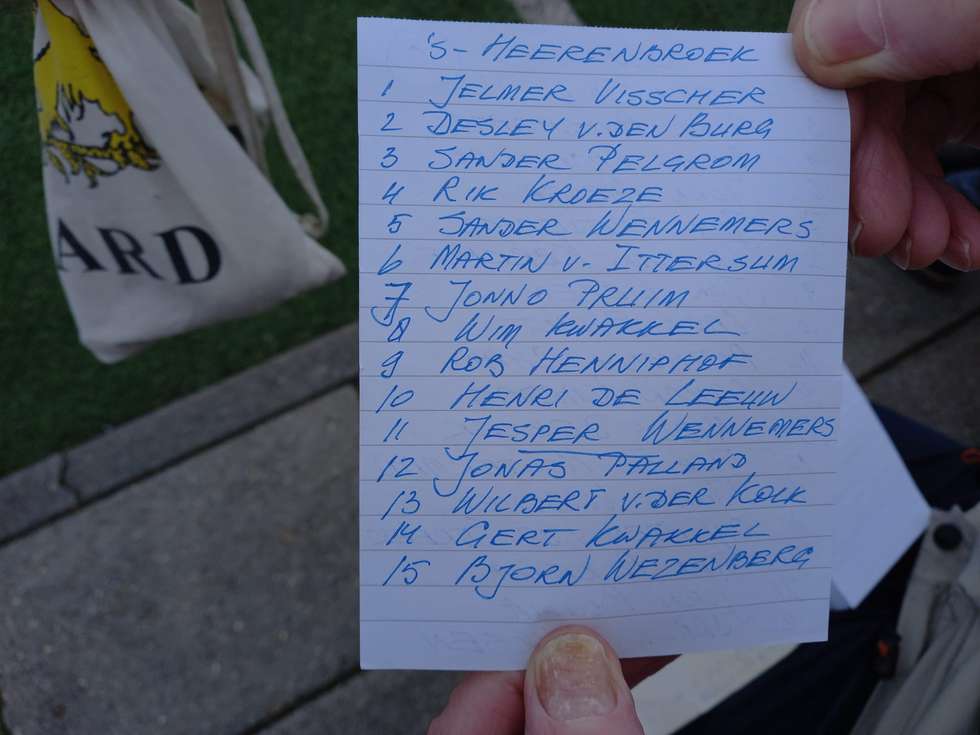 's- HEERENBROEK
1 JELMER VISSCHER
2 DESLEY V.DEN BURG
3 SANDER PELGROM
4 RIK KROEZE
5 SANDER WENNEMERS
6 MARTIN V- ITTERSUM
7 JONNO PRUIM
8 WIM KWAKKEL
9 ROB HENNIPHOF
10 HENRI DE LEEUW
11 JESPER WENNEMERS
12 JONAS PALLAND
13 WILBERT V.DER KOLK
14 GERT KWAKKEL
15 BJORN WEZENBERG
ARD